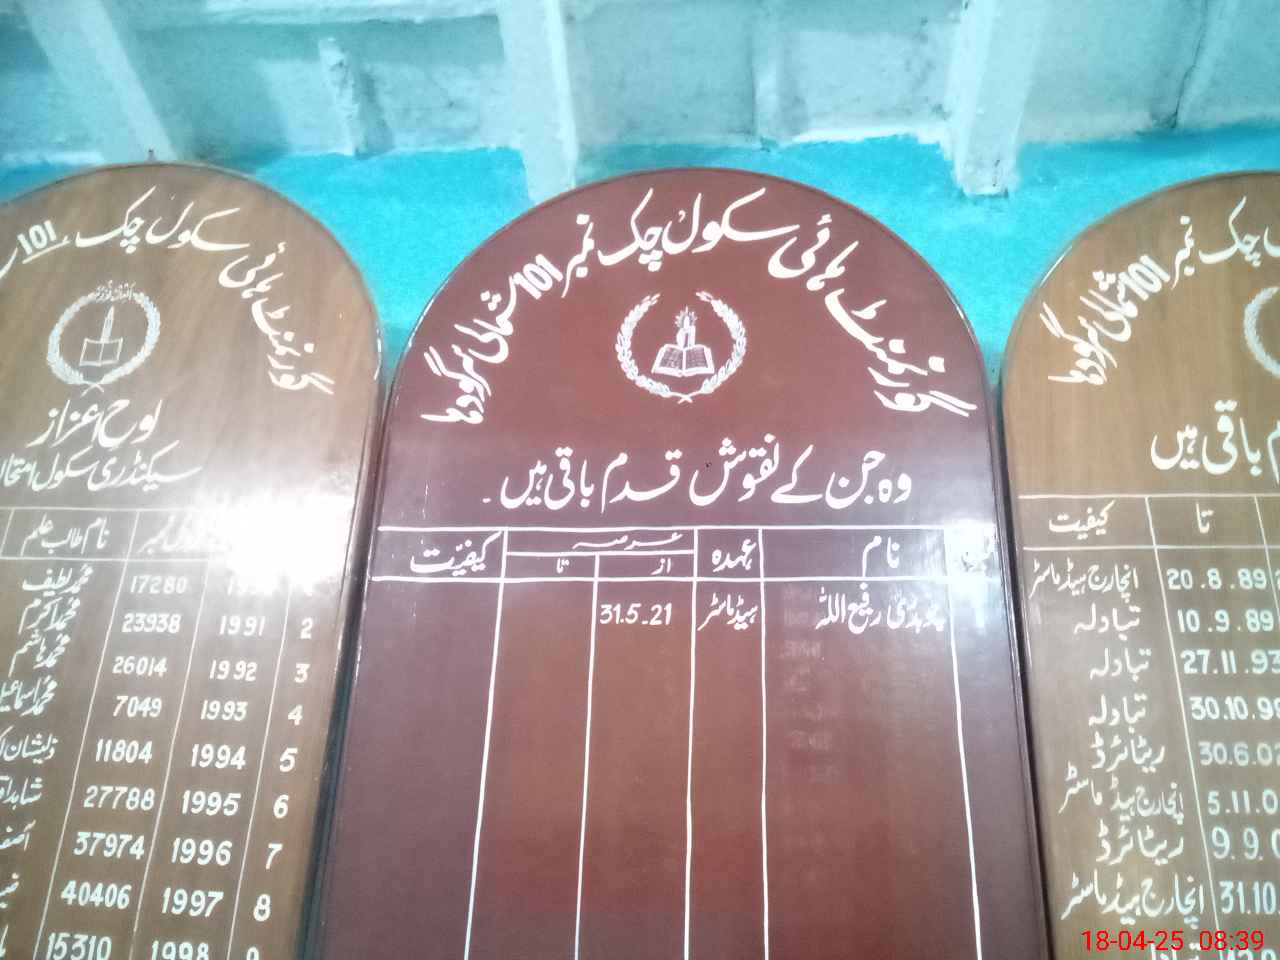 گورنمنٹ ہائی سکول چک نمبر 101 شمالی سرگودہا
وہ جن کے نقوش قدم باقی ہیں۔
نام عہدہ عرصہ کیفیّت
از تا
چوہدری رفیع اللہ ہیڈ ماسٹر 31.5.21
گورنمنٹ ہائی سکول چک 101
لوح اعزاز
سیکنڈری سکول
نام طالب علم
17280 محمد لطیف
2 1991 23938 محمد اکرم
3 1992 26014 محمد ہاشم
4 1993 7049 محمد اسماعیل
5 1994 11804 ذیشان
6 1995 27788 شاہد
7 1996 37974
8 1997 40406
9 1998 15310
چک نمبر 101 شمالی سرگودہا
باقی ہیں
تا کیفیت
20.8.89 انچارج ہیڈ ماسٹر
10.9.89 تبادلہ
27.11.93 تبادلہ
30.10.9 تبادلہ
30.6.02 ریٹائرڈ
5.11.0 انچارج ہیڈ ماسٹر
9.9.0 ریٹائرڈ
31.10 انچارج ہیڈ ماسٹر
18-04-25 08:39